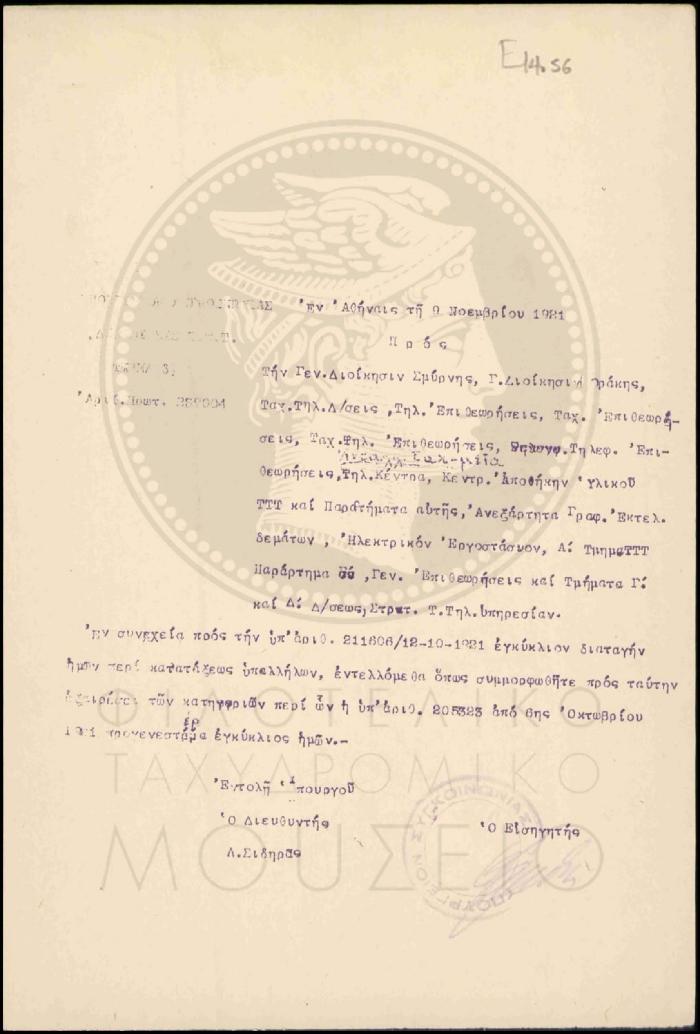 E14.56
Ἐν Ἀθήναις τῇ 9 Νοεμβρίου 1921
Πρός
ΤΜΗΜΑ
Ἀριθ.Πρωτ.
Τήν Γεν.Διοίκησιν Σμύρνης, Γ.Διοίκησιν Θράκης,
Ταχ.Τηλ.Δ/σεις ,Τηλ.Ἐπιθεωρήσεις, Ταχ. Ἐπιθεωρή-
σεις, Ταχ.Τηλ. Ἐπιθεωρήσεις, Τηλεφ. Ἐπι-
θεωρήσεις,Τηλ.Κέντρα, Κεντρ.Ἀποθήκην Ὑλικοῦ
ΤΤΤ καί Παρατήματα αὐτῆς,Ἀνεξάρτητα Γραφ.Ἐκτελ.
δεμάτων , Ἠλεκτρικόν Ἐργοστάσυον, Α! ΤμημαΤΤΤ
Παράρτημα ,Γεν. Ἐπιθεωρήσεις καί Τμήματα Γ!
καί Δ! Δ/σεως,Στρατ. Τ.Τηλ.ὑπηρεσίαν.
Ἐν συνεχεία πρός τήν ὑπ'ἀριθ. 211606/12-10-1921 ἐγκύκλιον διαταγήν
ἡμῶν περί κατατάξεως ὑπαλλήλων, ἐντελλόμεθα ὅπως συμμορφωθῆτε πρός ταύτην
ἐξαιρέσει τῶν κατηγοριῶν περί ὧν ἡ ὑπ'ἀριθ. 205323 ἀπό 6ης Ὀκτωβρίου
1921 προγενεστέρα ἐγκύκλιος ἡμῶν.-
Ἐντολῇ Ὑπουργοῦ
Ὁ Διευθυντής
Ὁ Εἰσηγητής
Λ.Σιδηρᾶς
ΥΠΟΥΡΓΕΙΟΝ ΣΥΓΚΟΙΝΩΝΙΑΣ
ΦΙΛΟΤΕΛΙΚΟ
ΤΑΧΥΔΡΟΜΙΚΟ
ΜΟΥΣΕΙΟ